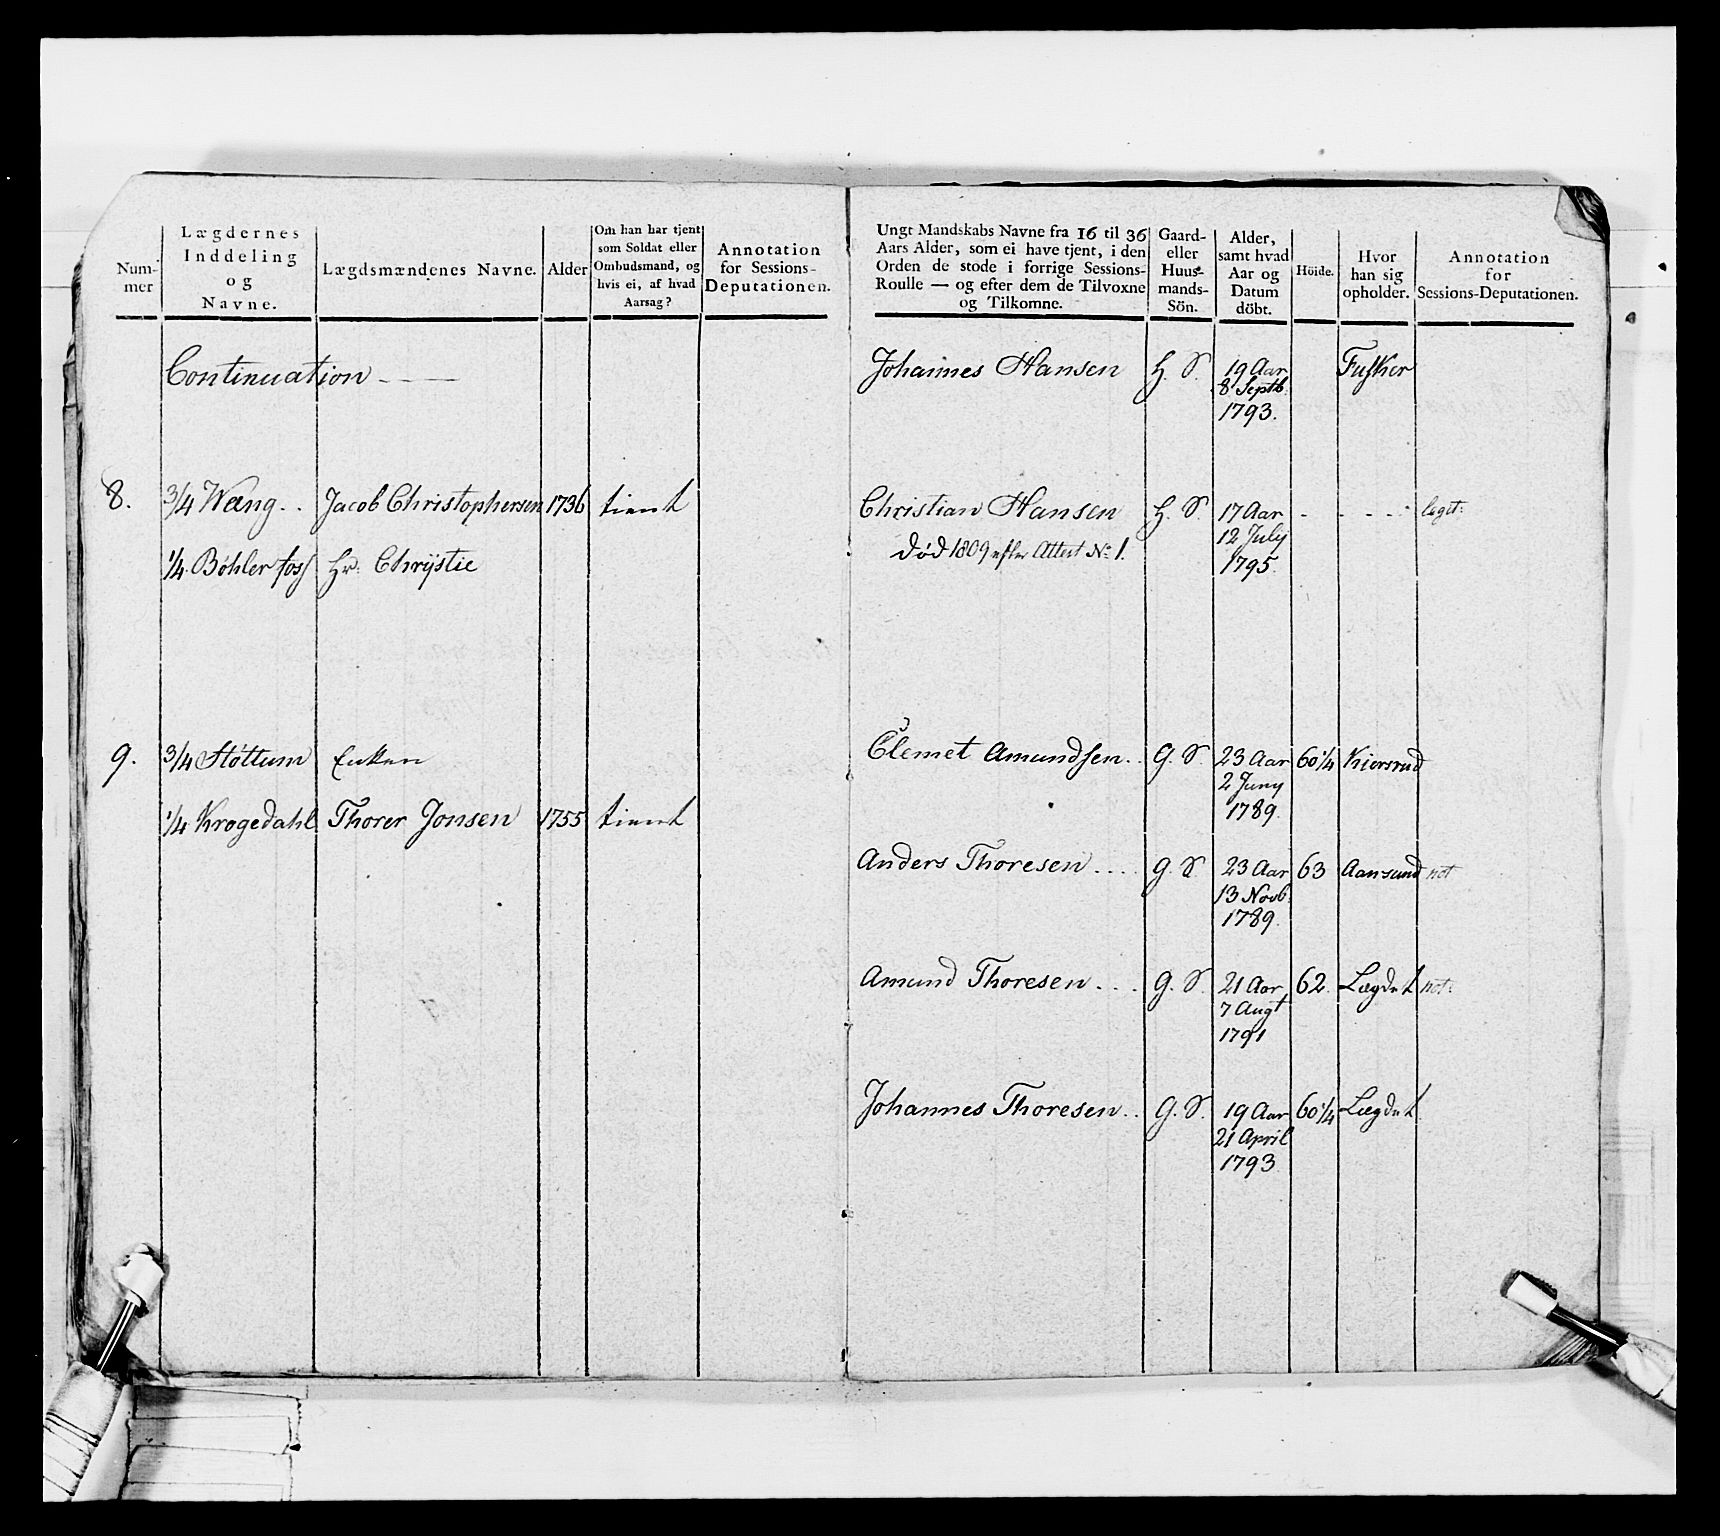 Num-
mer
Lægdernes
Inddeling
og
Navne.
Lægdsmændenes Navne.
Alder
Om han har tjent
som Soldat eller
Ombudsmand, og
hvis ei, af hvad
Aarsag?
Annotation
for Sessions-
Deputationen.
Continuation
8. 3/4 Wæng.. Jacob Christophersen 1736 tient
1/4 Bøhler foss Hr: Chrÿstie
9. 3/4 Støttum Enken
1/4 Krogedahl Thorer Jonsen 1755 tient
Ungt Mandskabs Navne fra 16 til 36
Aars Alder, som ei have tjent, i den
Orden de stode i forrige Sessions-
Roulle — og efter dem de Tilvoxne
og Tilkomne.
Gaard-
eller
Huus-
mands-
Sön.
Alder,
samt hvad
Aar og
Datum
döbt.
Höide.
Hvor
han sig
opholder.
Annotation
for
Sessions-Deputationen.
Johannes Hansen H. S. 19 Aar
8 Septb.
1793.
Christian Hansen H. S. 17 Aar - - - - -
død 1809 efter Attest No 1. 12 July
1795.
Clemet Amundsen.. G. S. 23 Aar 60 1/4 Kiorsrud
2 Juny
1789.
Anders Thoresen.... G. S. 23 Aar 63 Aansund not
13 Novb.
1789.
Amund Thoresen... G. S. 21 Aar 62. Lægdet not:
7 Augt
1791
Johannes Thoresen.. G. S. 19 Aar 60 1/4 Lægdet
21 April
1793